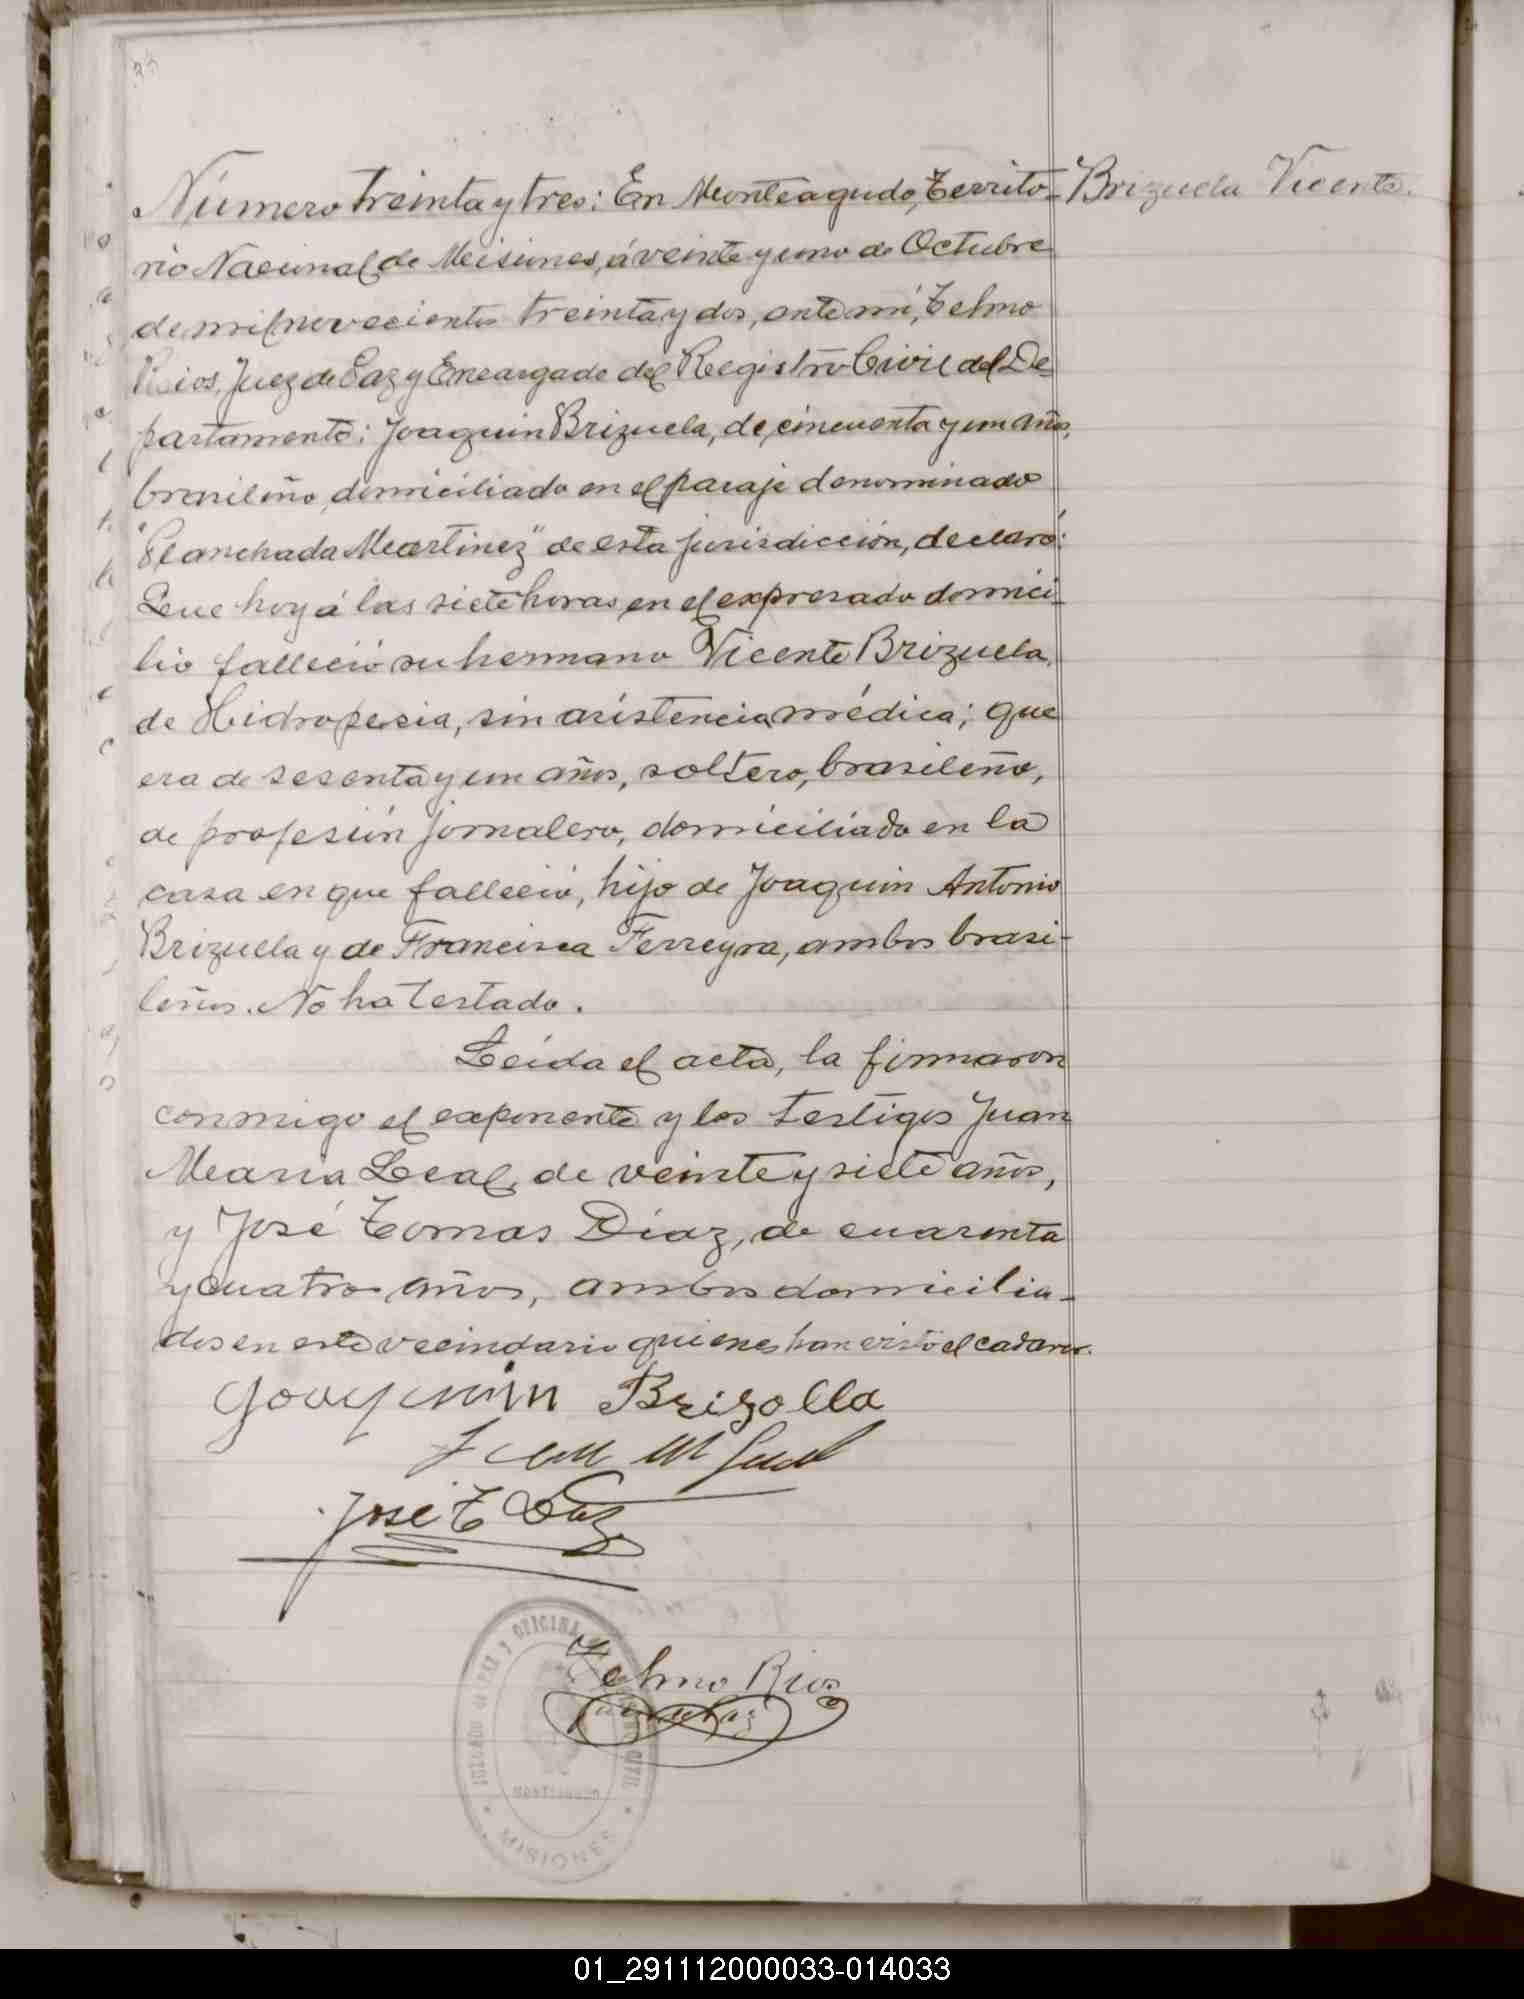 Número treinta y tres: En Monteagudo, Territo-
rio Nacional de Misiones, á veinte y uno de Octubre
de mil novecientos treinta y dos, ante mí, Telmo
Rios, Juez de Paz y Encargado del Registro Civil del De-
partamento: Joaquin Brizuela, de cincuenta y un años,
brasileño, domiciliado en el paraje denominado
"Planchada Martinez" de esta jurisdicción, declaró:
Que hoy á las siete horas en el expresado domici-
lio falleció su hermano Vicente Brizuela,
de Hidropesia, sin asistencia médica; que
era de sesenta y un años, soltero, brasileño,
de profesión jornalero, domiciliado en la
casa en que falleció, hijo de Joaquin Antonio
Brizuela y de Francisca Ferreyra, ambos brasi-
leños. No ha testado.
Leída el acta, la firmaron
conmigo el exponente y los testigos Juan
Maria Leal, de veinte y siete años,
y José Tomas Díaz, de cuarenta
y cuatro años, ambos domicilia-
dos en este vecindario quienes han visto el cadaver.
Brizuela Vicente.
Joaquin Brizolla
Juan M Leal
José T Diaz
Telmo Rios
Juez de Paz
JUZGADO DE PAZ Y OFICINA REGISTRO CIVIL
MISIONES
01_291112000033-014033